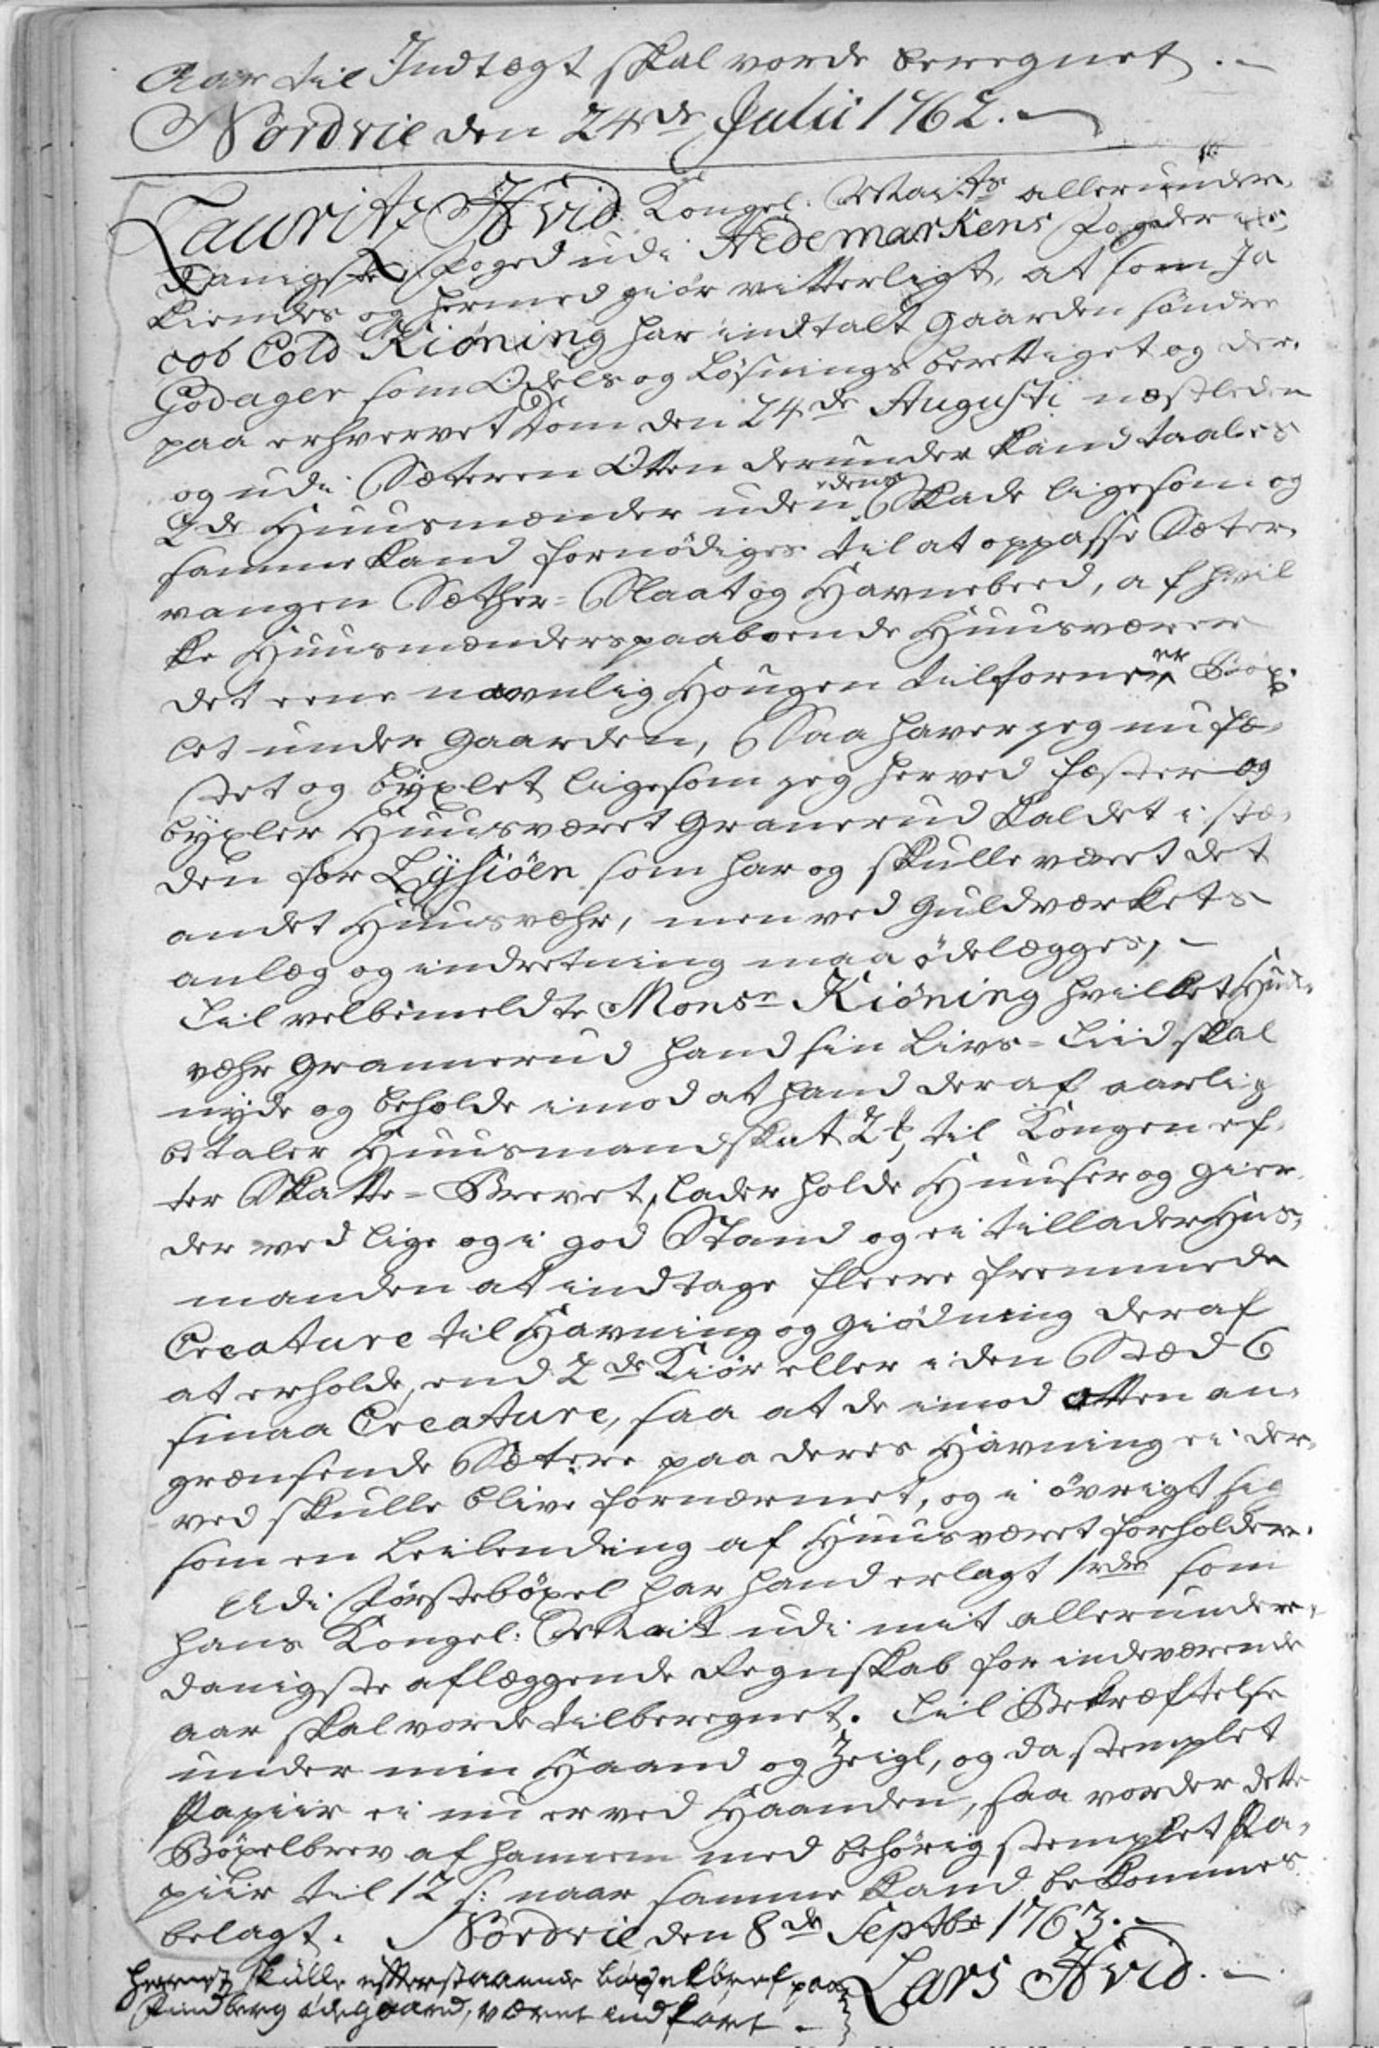 Aar til Indtægt skal vorde beregnet.
Nordvie den 24de Julii 1762.
Lauritz Hvid Kongel. Maits allerunder-
danigste Foged udi Hedemarkens Fogderie,
kiendes og hermed giør vitterligt, at som Ja
cob Cold Kiøning har indtalt Gaarden søndre
Godager som Odels og Løsnings berettiget og der-
paa erhvervet Dom den 24de Augusti næstleden
og udi Sæteren Otten derunder kand taales
2de Huusmænder uden dens Skade ligesom og
samme kand fornødiges til at oppasse Sæter-
vangen Sæther-Slaat og Havnebeed, af hvil
ke Huusmænders paaboende Huusværer
det eene navnlig Hougen tilforne er Böx-
let under Gaarden, Saa haver jeg nu fæ-
stet og byxlet ligesom jeg herved fæster og
byxler Huusværet Granerud kaldet i stæ-
den for Lysiöen som har og skulle været det
andet Huusvæhr, men ved Guldværkets
anlæg og indretning maa ødelægges,
til velbemeldte Monsr Kiöning hvilket Huus-
væhr Grannerud hand sin Livs-Tiid skal
nyde og beholde imod at hand deraf aarlig
betaler Huusmandskat 2 til Kongen ef-
ter Skatte-Brevet, lader holde Huuser og Gier-
der ved lige og i god Stand og ei tillader Huus-
manden at indtage fleere fremmede
Creature til Havning og Giödning deraf
at erholde, end 2de Kiör eller i den Stæd 6
smaa Creature, saa at de imod Otten an-
grænsende Sætere paa deres Havning ei der-
ved skulle blive fornærmet, og i øvrigt sig
som en Leilending af Huusværet forholder.
Udi Förstebóxel har hand erlagt 1 rdr som
hans Kongel: Mait udi mit allerunder-
danigste aflæggende Regnskab for indeværende
aar skal vorde tilberegnet. Til Bekræftelse
under min Haand og Zeigl, og da stemplet
Papiir ei nu er ved Haanden, saa vorder dette
Böxelbrev af hannem med behörig stemplet Pa-
piir til 12 s: naar samme kand bekommes
belagt. Nordvie den 8de Septbr 1763.
Lars Hvid.
hernest skulle efterstaaende böxelbref paa
Lindberg ödegaard, været indfört.